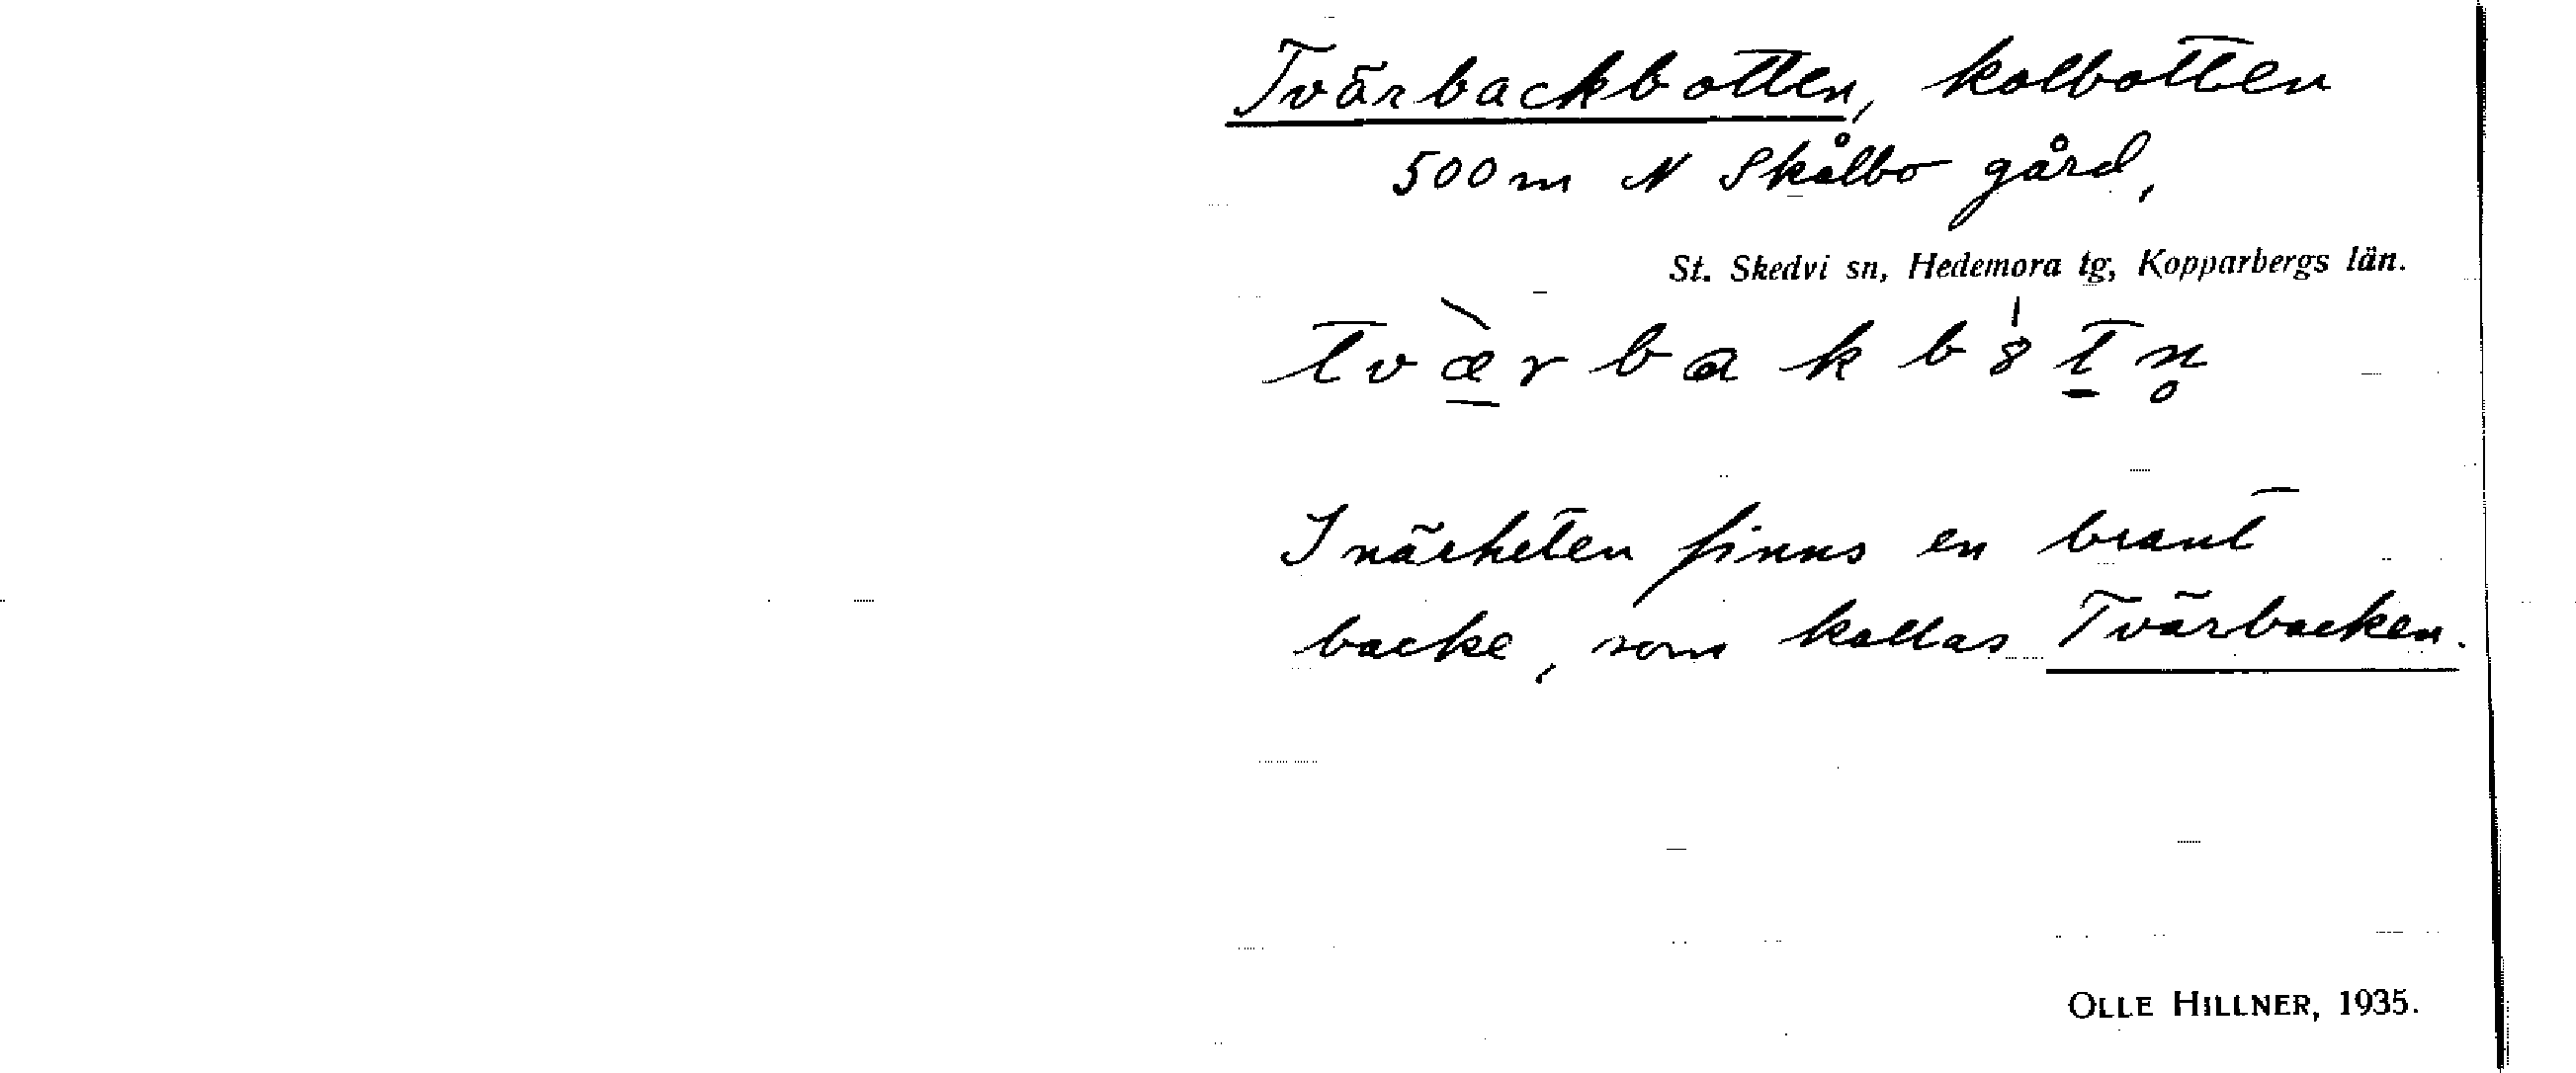 Tvärbackbotten, kolbotten
500 m N Skålbo gård,
St. Skedvi sn, Hedemora tg, Kopparbergs län.
tvæ̱̀rbakbˈ8t̠n̥
I närheten finns en brant
backe, som kallas Tvärbacken.
OLLE HILLNER, 1935.